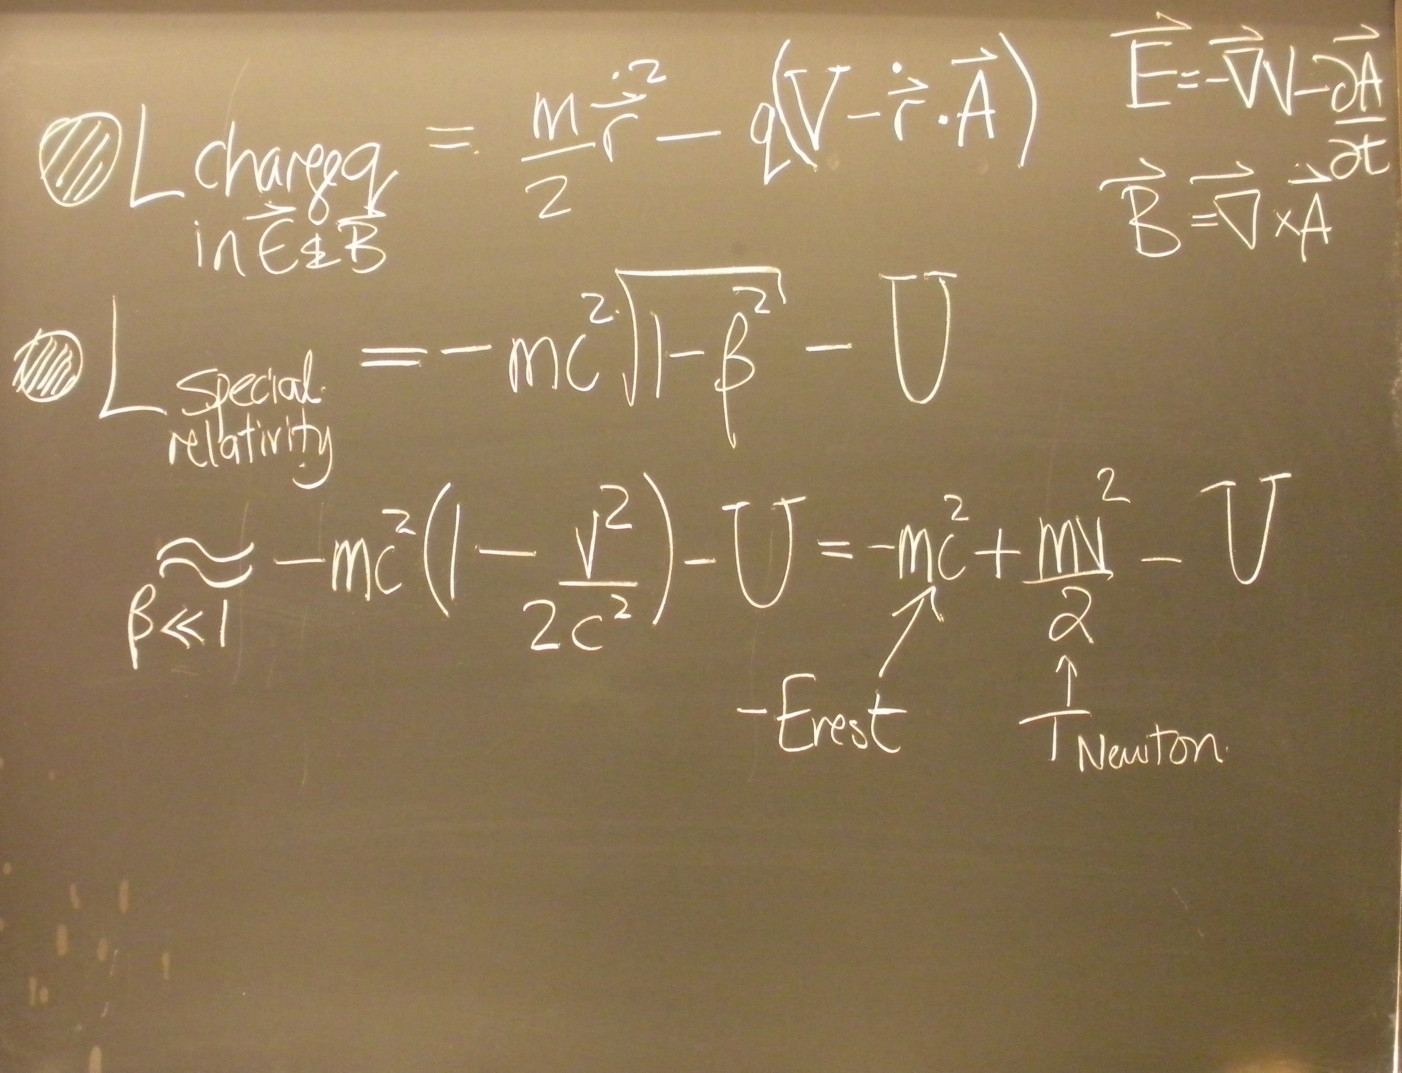 L charge q in E⃗ & B⃗ = m/2 ṙ⃗² − q(V − ṙ⃗ · A⃗)
E⃗ = −∇⃗V − ∂A⃗/∂t
B⃗ = ∇⃗ × A⃗
L special relativity = −mc²√(1−β²) − U
≈ β≪1 −mc²(1 − v²/2c²) − U = −mc² + mv²/2 − U
−Erest
T Newton